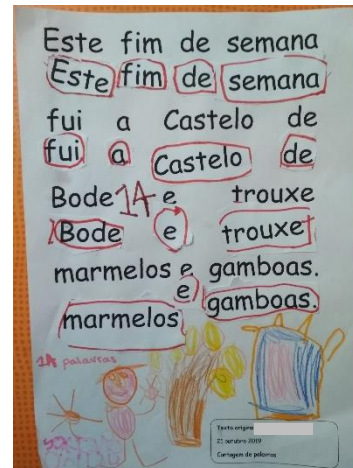 Este fim de semana
Este fim de semana
fui a Castelo de
fui a Castelo de
Bode 14 e trouxe
Bode e trouxe
marmelos e gamboas.
marmelos e gamboas.
14 palavras
Texto
21 outubro 2019
Contagem de palavras